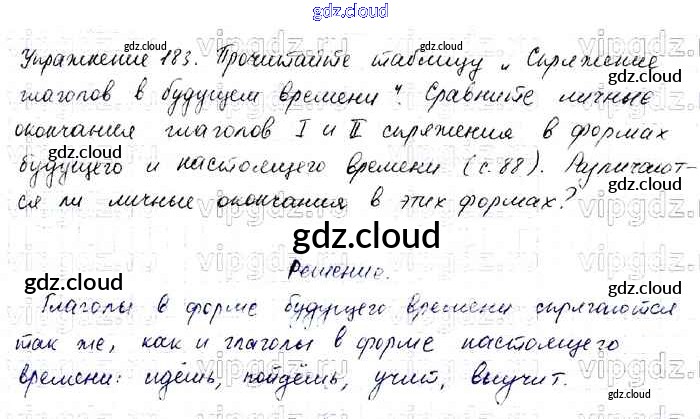 gdz.cloud
Упражнение 183. Прочитайте таблицу „Спряжение
глаголов в будущем времени". Сравните личные
окончания глаголов I и II спряжения в формах
будущего и настоящего времени (с. 88). Различают-
ся ли личные окончания в этих формах?
gdz.cloud
Решение.
Глаголы в форме будущего времени спрягаются
так же, как и глаголы в форме настоящего
времени: идёшь, пойдёшь, учит, выучит.